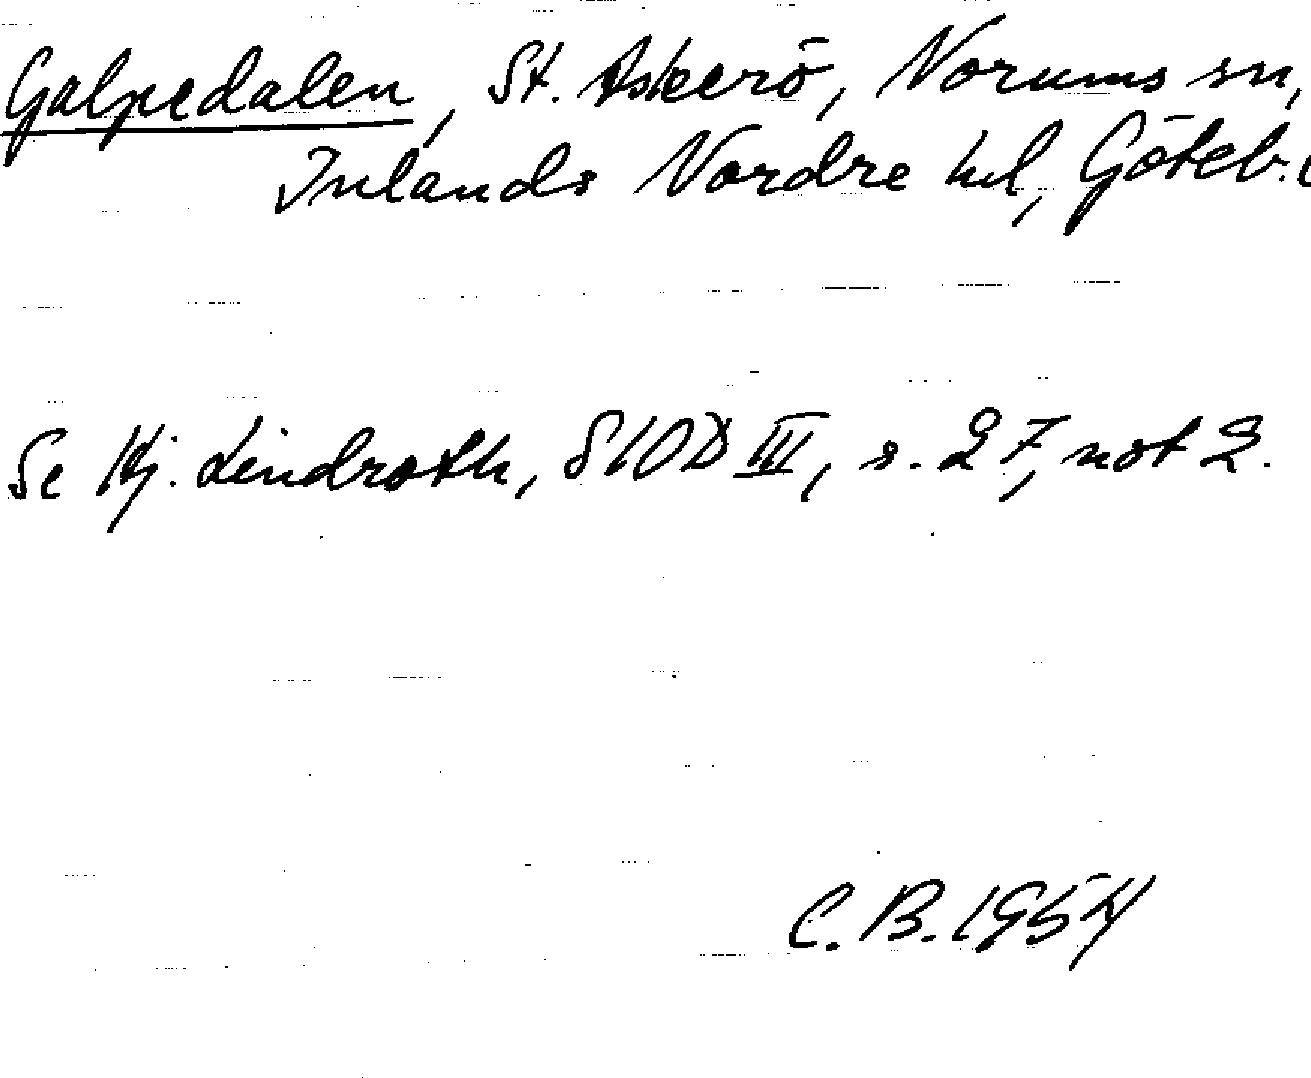 Galpedalen, St. Askerö, Norums sn,
Inlands Nordre hd, Göteb.
Se Hj. Lindroth, SIOD III, s. 27, not 2.
C. B. 1954